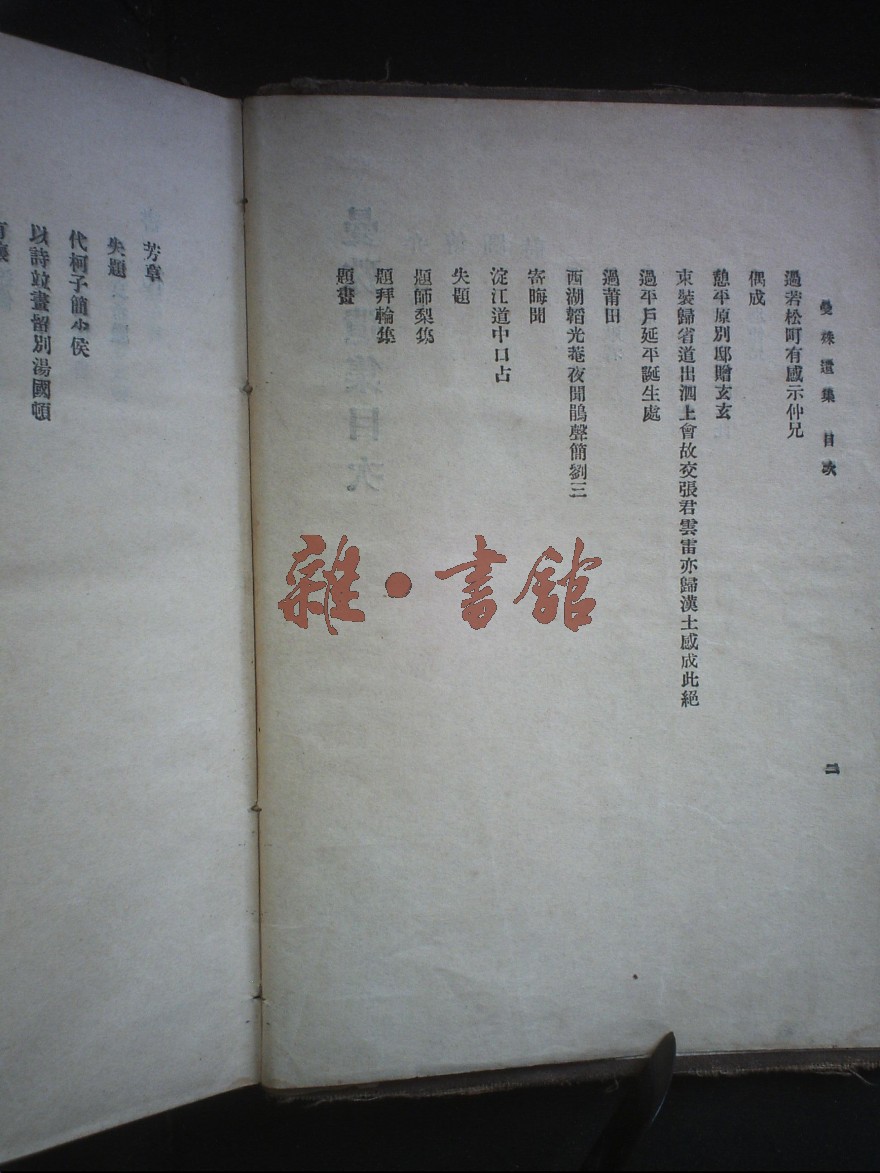 曼殊遺集 目次
二
過若松町有感示仲兄
偶成
憩平原別邸贈玄玄
束裝歸省道出泗上會故交張君雲雷亦歸漢土感成此絕
過平戶延平誕生處
過莆田
西湖韜光菴夜聞鵑聲簡劉三
寄晦聞
淀江道中口占
失題
題師梨集
題拜輪集
題畫
芳草
失題
代柯子簡少侯
以詩竝畫留別湯國頓
雜·書館